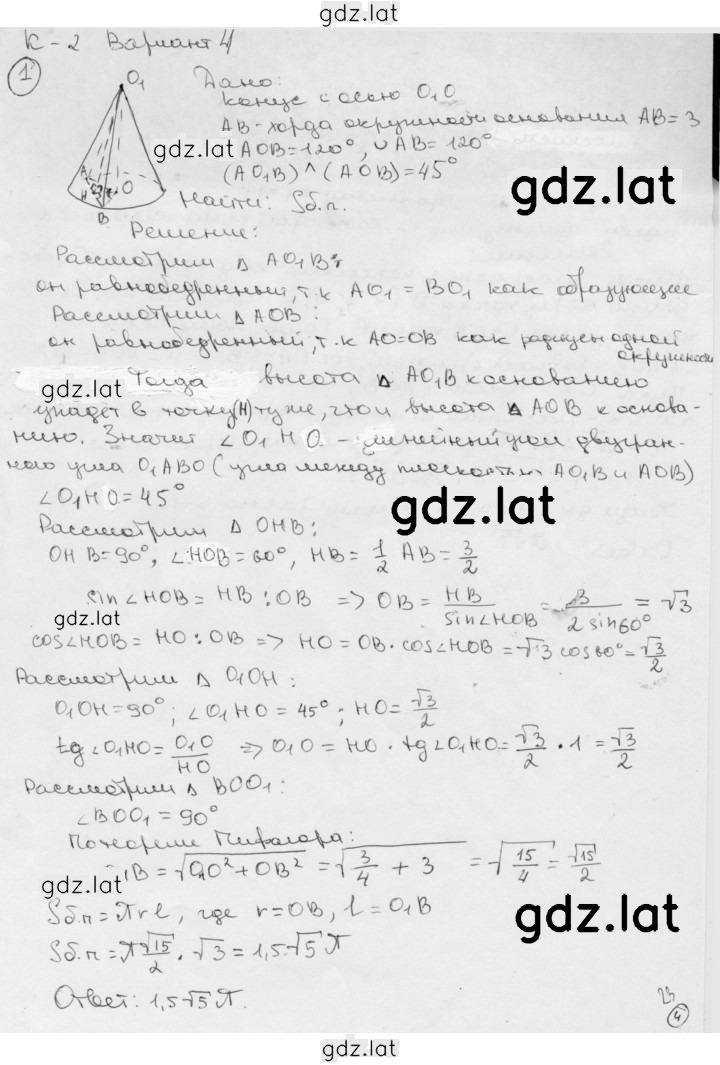 gdz.lat
К-2 Вариант 4
1
Дано:
конус с осью O₁O
AB-хорда окружности основания AB=3
gdz.lat
AOB=120°, ∪AB=120°
(AO₁B)^(AOB)=45°
gdz.lat
Найти: Sб.п.
O₁
A
H
O
B
Решение:
Рассмотрим △ AO₁B:
он равнобедренный, т.к AO₁ = BO₁ как образующие
Рассмотрим △ AOB:
он равнобедренный, т.к AO=OB как радиусы одной
окружности
gdz.lat
Тогда высота △ AO₁B к основанию
упадет в точку (H) ту же, что и высота △ AOB к основа-
нию. Значит ∠O₁HO - линейный угол двугран-
ного угла O₁ABO (угла между плоскостями AO₁B и AOB)
∠O₁HO=45°
gdz.lat
Рассмотрим △ OHB:
OHB=90°, ∠HOB=60°, HB = 1/2 AB = 3/2
sin∠HOB = HB : OB => OB = HB/sin∠HOB = 3/2sin60° = √3
gdz.lat
cos∠HOB = HO : OB => HO = OB · cos∠HOB = √3 cos60° = √3/2
Рассмотрим △ O₁OH:
O₁OH=90°; ∠O₁HO = 45°; HO = √3/2
tg∠O₁HO = O₁O/HO => O₁O = HO · tg∠O₁HO = √3/2 · 1 = √3/2
Рассмотрим △ BOO₁:
∠BOO₁ = 90°
По теореме Пифагора:
₁B = √O₁O²+OB² = √3/4 + 3 = √15/4 = √15/2
gdz.lat
Sб.п = πrl, где r=OB, l=O₁B
gdz.lat
Sб.п = π√15/2 · √3 = 1,5√5 π
Ответ: 1,5√5 π.
23
4
gdz.lat